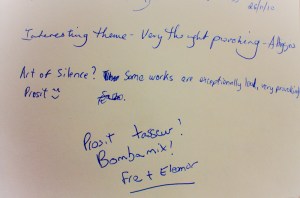 26/11/10
Interesting theme - Very thought provoking - Allegra
Art of Silence? Some works are exceptionally loud, very provoking
Prosit
Prosit tassew!
Bombamix!
Fre + Eleanor